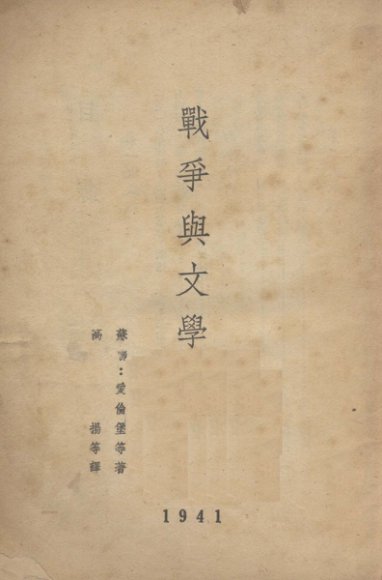 戰爭與文學
蘇聯：愛倫堡等著
高 揚等譯
1941